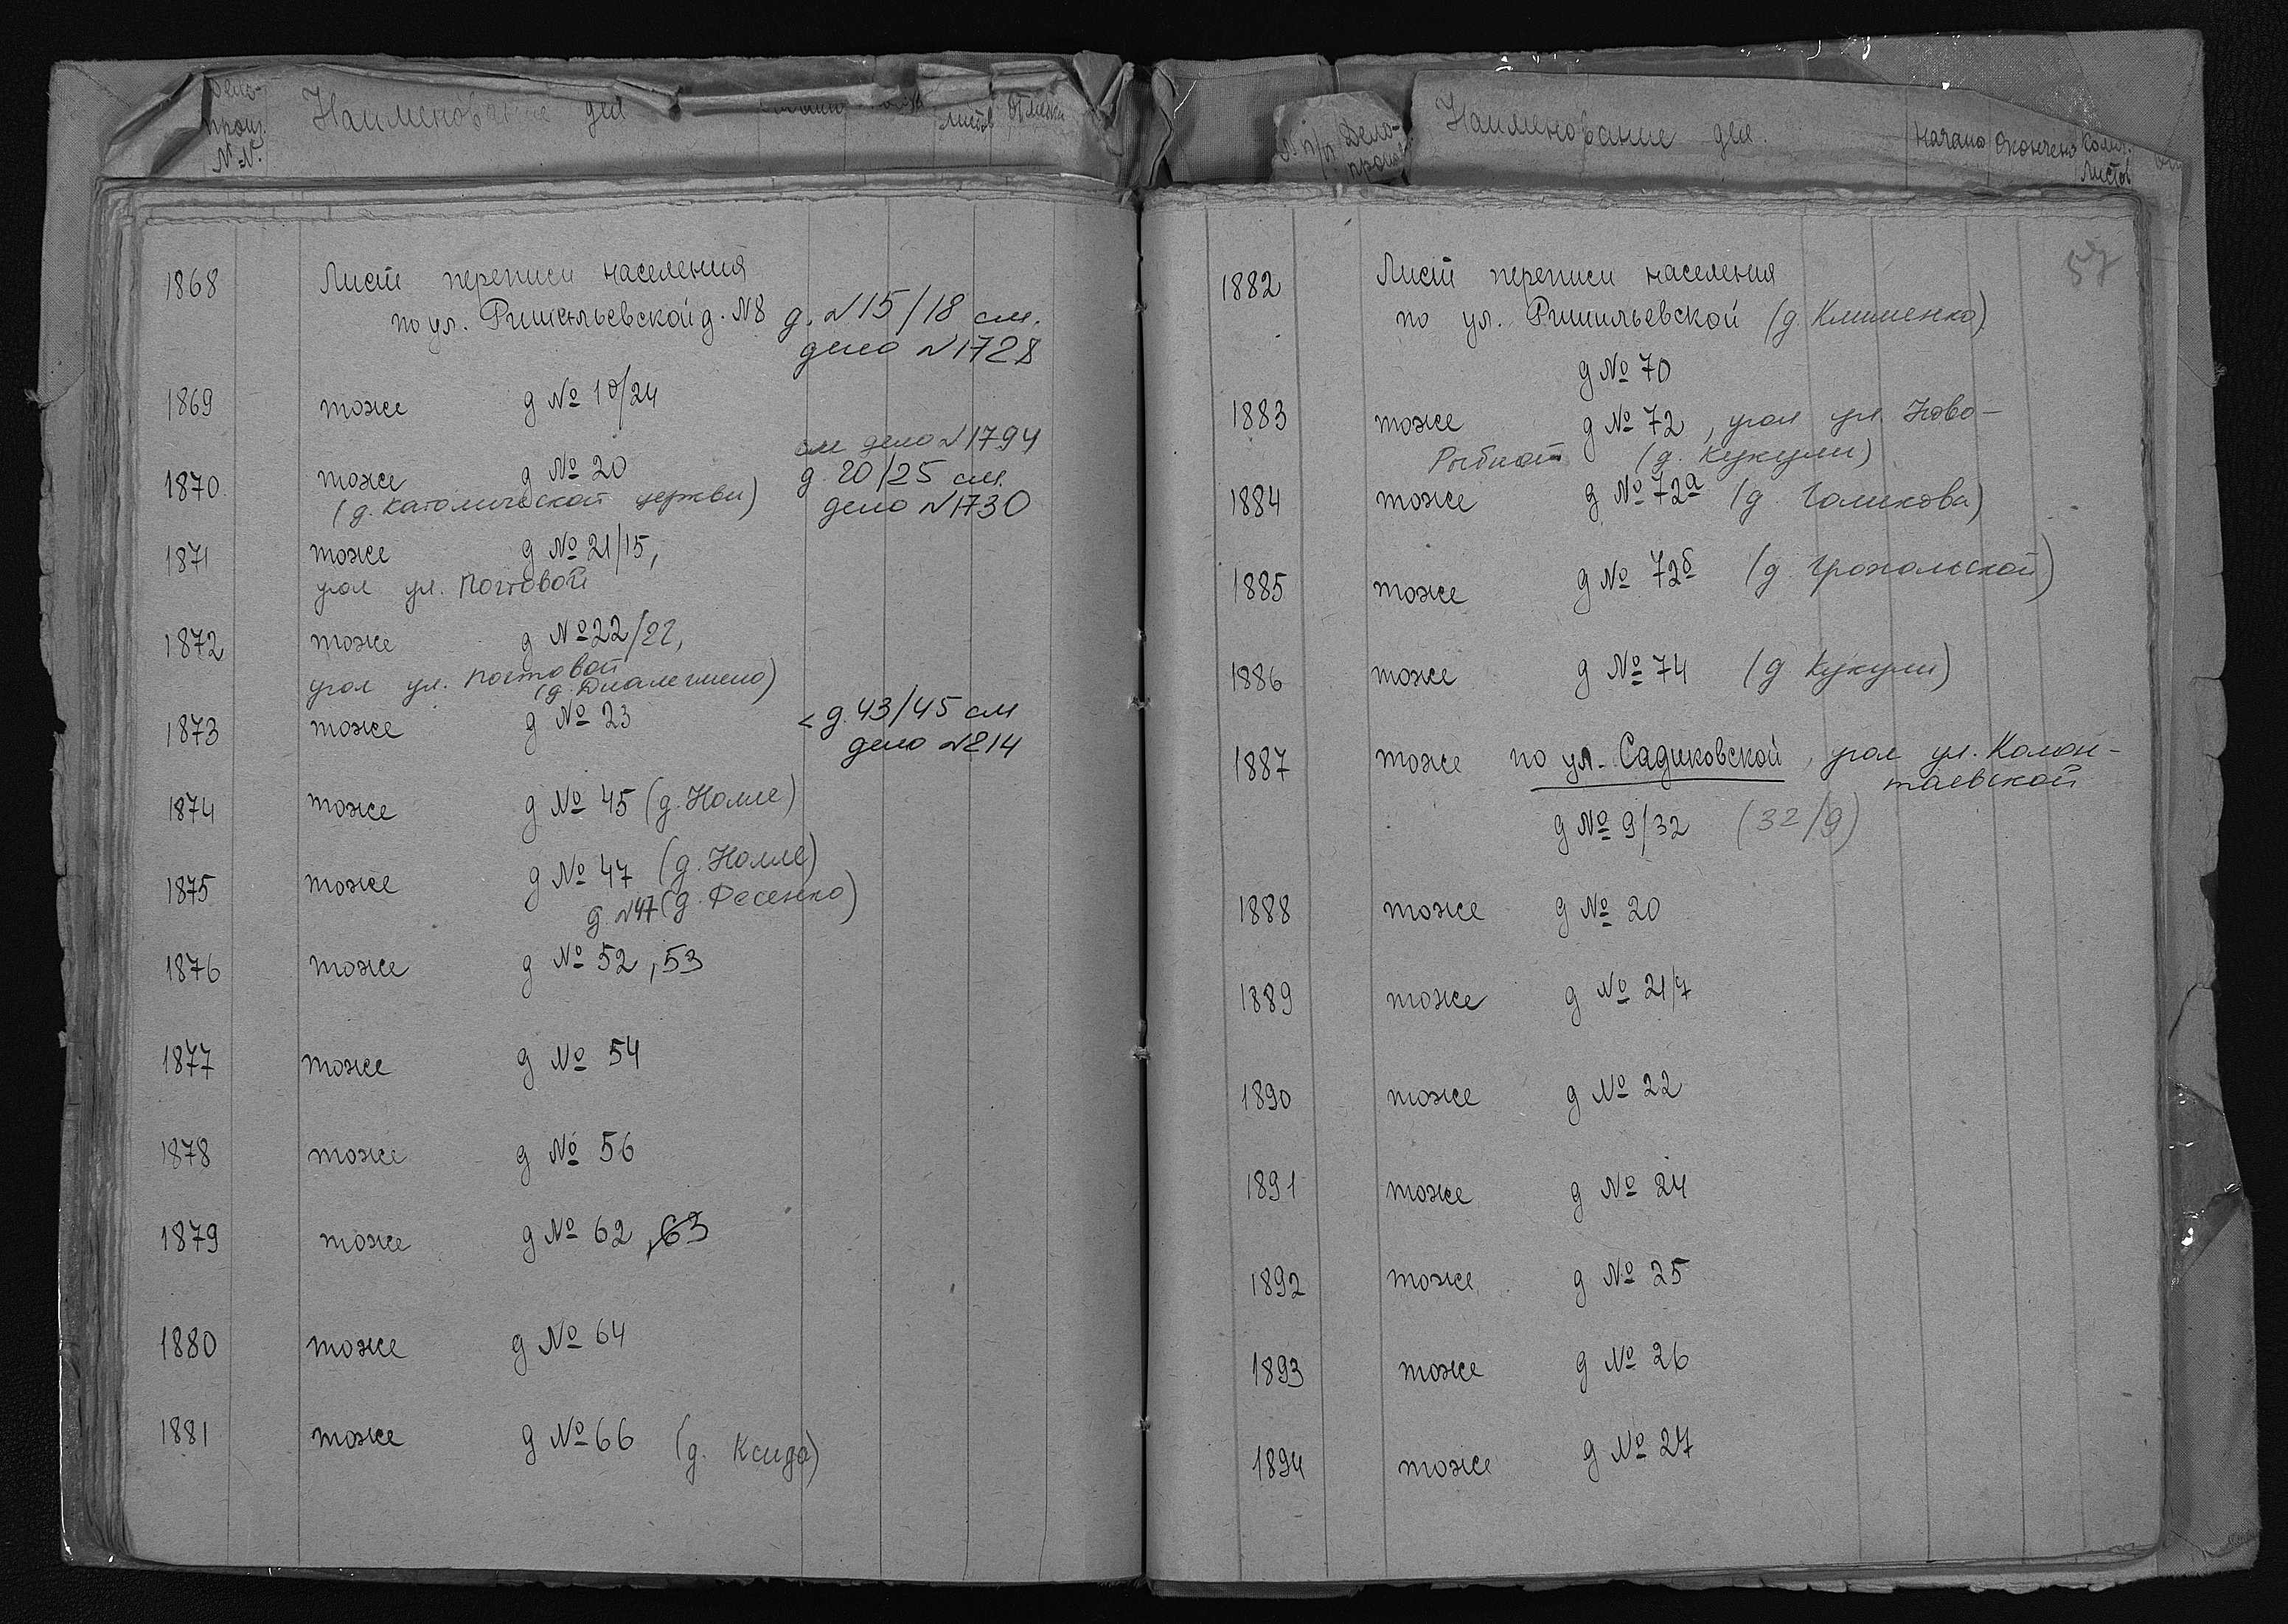 Дело-
произ.
№№.
Наименование дел
листов
Отметки
1868 Листы переписи населения
по ул. Ришельевской д. №8 д. №15/18 см.
дело №1728
1869 тоже д № 10/24
см дело №1794
1870 тоже д № 20 д. 20/25 см.
(д. католической церкви) дело №1730
1871 тоже д № 21/15,
угол ул. Почтовой
1872 тоже д № 22/22,
угол ул. Почтовой
(д. )
1873 тоже д № 23 < д. 43/45 см
дело №214
1874 тоже д № 45 (д. Нолле)
1875 тоже д № 47 (д. Нолле)
д. №47 (д. Фесенко)
1876 тоже д № 52, 53
1877 тоже д № 54
1878 тоже д № 56
1879 тоже д № 62, 63
1880 тоже д № 64
1881 тоже д № 66 (д. Ксида)
№ п/п
Дело-
произ.
Наименование дел.
Начато
Окончено
Колич.
листов
57
1882 Листы переписи населения
по ул. Ришильевской (д. Клименко)
д № 70
1883 тоже д № 72, угол ул. Ново-
Рыбной (д. Кукули)
1884 тоже д № 72а (д. Голикова)
1885 тоже д № 72б (д. Грохольской)
1886 тоже д № 74 (д Кукули)
1887 тоже по ул. Садиковской, угол ул. Колон-
таевской
д № 9/32 (32/9)
1888 тоже д № 20
1889 тоже д № 21/7
1890 тоже д № 22
1891 тоже д № 24
1892 тоже д № 25
1893 тоже д № 26
1894 тоже д № 27